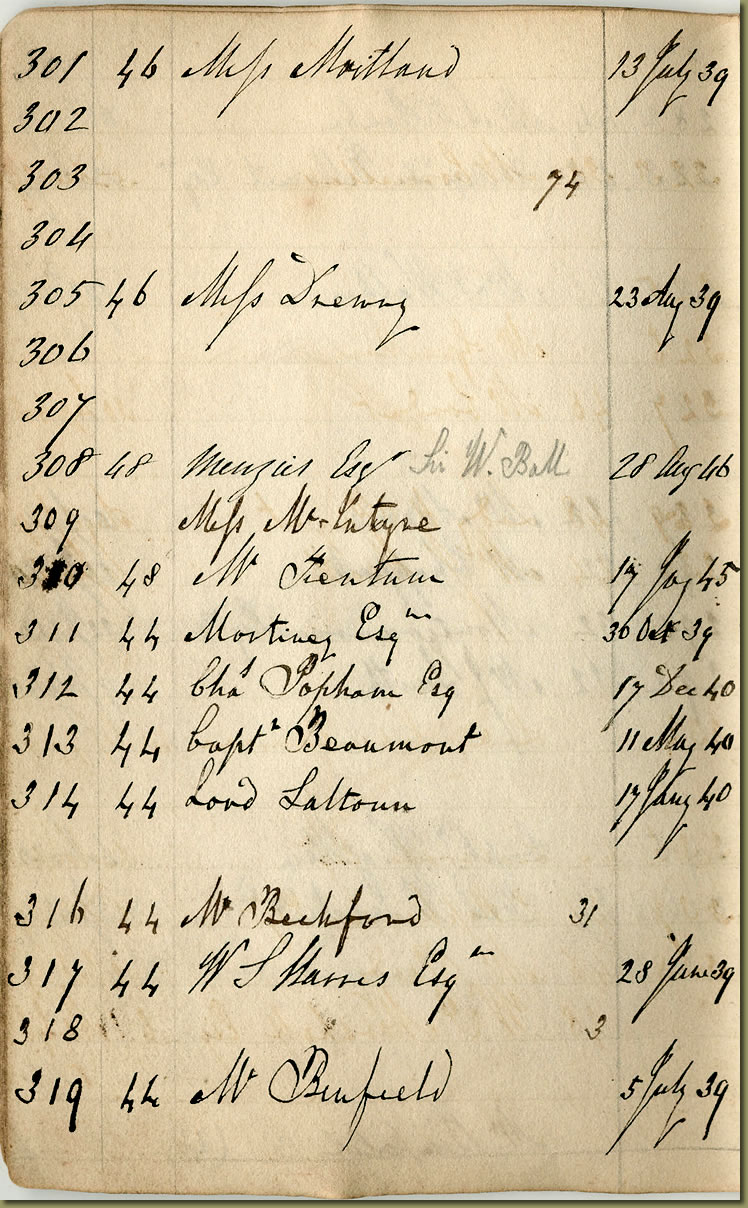 301 46 Miss Maitland 13 July 39
302
303 74
304
305 46 Miss Drewry 23 Aug 39
306
307
308 48 Menzies Esqr Sir W. Ball 28 Aug 46
309 Miss McIntyre
310 48 Mr Trentum 17 45
311 44 Martinez Esqre 30 Oct 39
312 44 Chas Popham Esq 17 Dec 40
313 44 Captn Beaumont 11 May 40
314 44 Lord Saltoun 17 Jany 40
316 44 Mr Beckford 31
317 44 W S Harris Esqre 28 June 39
318 3
319 44 Mr Benfield 5 July 39